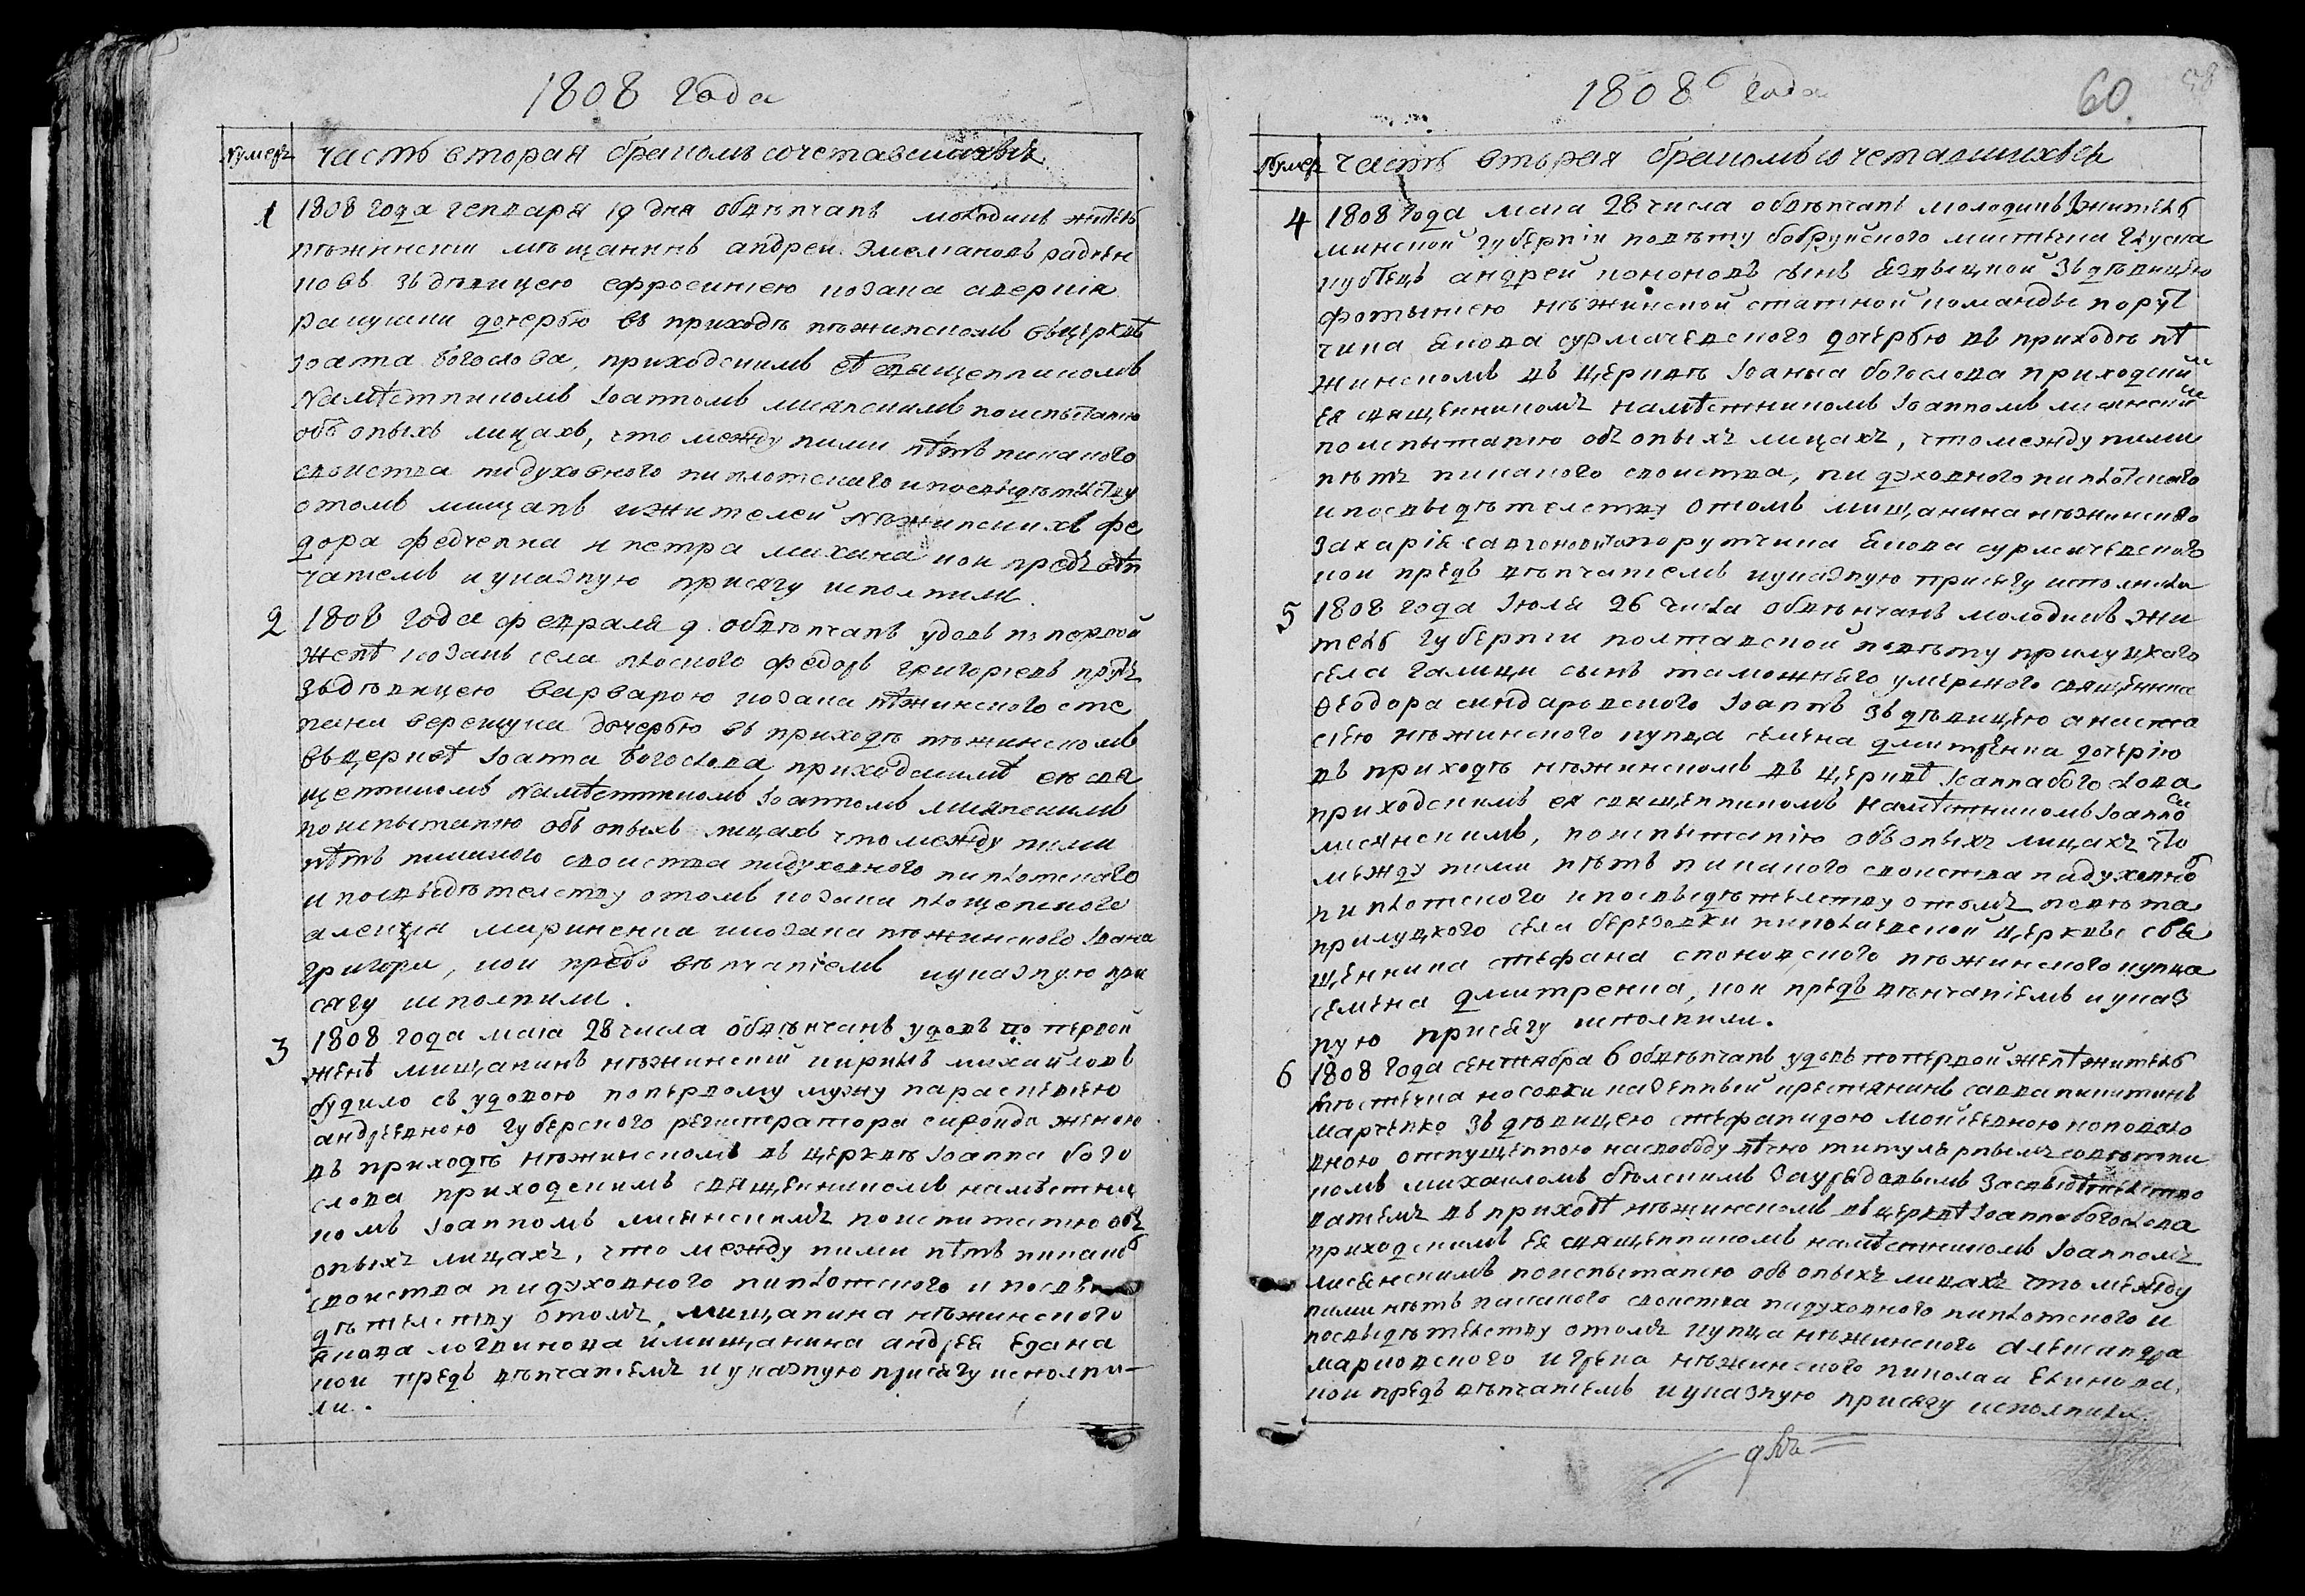 1808 года
Нумеръ часть вторая бракомъ сочетавшихъся
1 1808 года генваря 19 дня обвѣнчанъ молодикъ житель
нѣжинскии мѣщанинъ андреи Эмелiановъ
новъ зъ дѣвицею ефросинiею козака аверкiя
дочерью въ приходѣ нѣжинскомъ въ церквѣ
Iоанна богослова, приходскимъ еѣ священникомъ
Намѣстникомъ Iоанномъ поиспытанiю
объ оныхъ лицахъ, что между ними нѣтъ никакого
своиства нидуховного ниплотского ипосвыдѣтельству
отомъ мищанъ ижителеи Нѣжинскихъ фе
дора федченка и петра михана кои предъ вѣн
чатемъ иуказную присягу исполнили.
2 1808 года февраля 9. обвѣнчанъ удовъ по первои
женѣ козакъ села плоского федоръ григорiевъ
зъдѣвицею варварою козака нѣжинского сте
пана верещуна дочерью въ приходѣ нѣжинскомъ
въцерквѣ Iоанна богослова приходскимъ еѣ свя
щенникомъ Намѣстникомъ Iоанномъ
поиспытанiю объ оныхъ лицахъ что между ними
нѣтъ никакого своиства нидуховного ниплотского
и посвыдѣтелству отомъ козака
алексѣя мариненка икозака нѣжинского Iвана
григори, кои предъ вѣнчанiемъ иуказную при
сягу исполнили.
3 1808 года маiа 28 числа обвѣнчанъ удовъ по первои
женѣ мищанинъ нѣжинскiй кирилъ михаиловъ
будило съ удовою попервому мужу параскевiею
андреевною губерского регистратора женою
въ приходѣ нѣжинскомъ въ церквѣ Iоанна бого
слова приходскимъ священникомъ намѣстни
комъ Iоанномъ поиспитанiю объ
оныхъ лицахъ, что между ними нѣтъ никаког
своиства нидуховного ниплотского и посвы
дѣтелству отомъ, мищанина нѣжинского
якова логвинова имищанина андрея едана
кои предъ вѣнчанiемъ иуказную присягу исполни-
ли.
1808 года
60
Нумер часть вторая бракомъ сочетавшихъся
4 1808 года маiа 28 числа обвѣнчанъ молодикъ житель
минской губернiи повѣту бобруйского мистечка глуска
андрей кононовъ сынъ зъ дѣвицею
фотынiею нѣжинской статной команды поруч
чика якова сурмачевского дочерью въ приходѣ нѣ
жинскомъ въ церквѣ Iоанна богослова приходский
ея священникомъ намѣстникомъ Iоанномъ
поиспытанiю объ оныхъ лицахъ, что между ними
нѣтъ никакого своиства, ни духовного ниплотского
ипосвыдѣтелству отомъ мищанина нѣжинского
захарiя поручика якова сурмачевского
кои предъ вѣнчанiемъ иуказную присягу исполнили
5 1808 года Iюля 26 числа обвѣнчанъ молодикъ жи
тель губернiи полтавской повѣту прилуцкаго
села галици сынъ таможняго умершого священника
Ѳеодора Iоаннъ зъ дѣвицею анаста
сiею нѣжинского купца семена дмитренка дочерiю
въ приходѣ нѣжинскомъ въ церквѣ Iоанна богослова
приходскимъ ея священникомъ намѣстникомъ Iоанно
поиспытанiю объ оныхъ лицахъ что
между ними нѣтъ никакого своиства нидуховног
ниплотского ипосвыдѣтелству отомъ повѣта
прилуцкого села березовки николаевской церкви свя
щенника стефана нѣжинского купца
семена дмитренка, кои предъ вѣнчанiемъ иуказ
ную присягу исполнили.
6 1808 года сентября 6 обвѣнчанъ удовъ попервой женѣ житель
мѣстечка носовки казенный крестянинъ савва никитинъ
марченко зъ дѣвицею стефанидою мойсеевною
вною отпущенною насвободу вѣчно титулярнымъ совѣтни
комъ михаиломъ
въ приходѣ нѣжинскомъ въ церквѣ Iоанна богослова
приходскимъ ея священникомъ намѣстникомъ Iоанномъ
поиспытанiю объ оныхъ лицахъ что между
ними нѣтъ никакого своиства нидуховного ниплотского и
посвыдѣтелству отомъ купца нѣжинского александра
марковского игрека нѣжинского николая
кои предъ вѣнчанiемъ иуказную присягу исполнили.